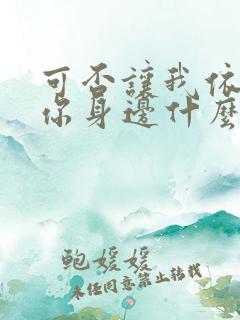 可否讓我依
你身邊什麼
鲍媛媛
未经同意禁止转载